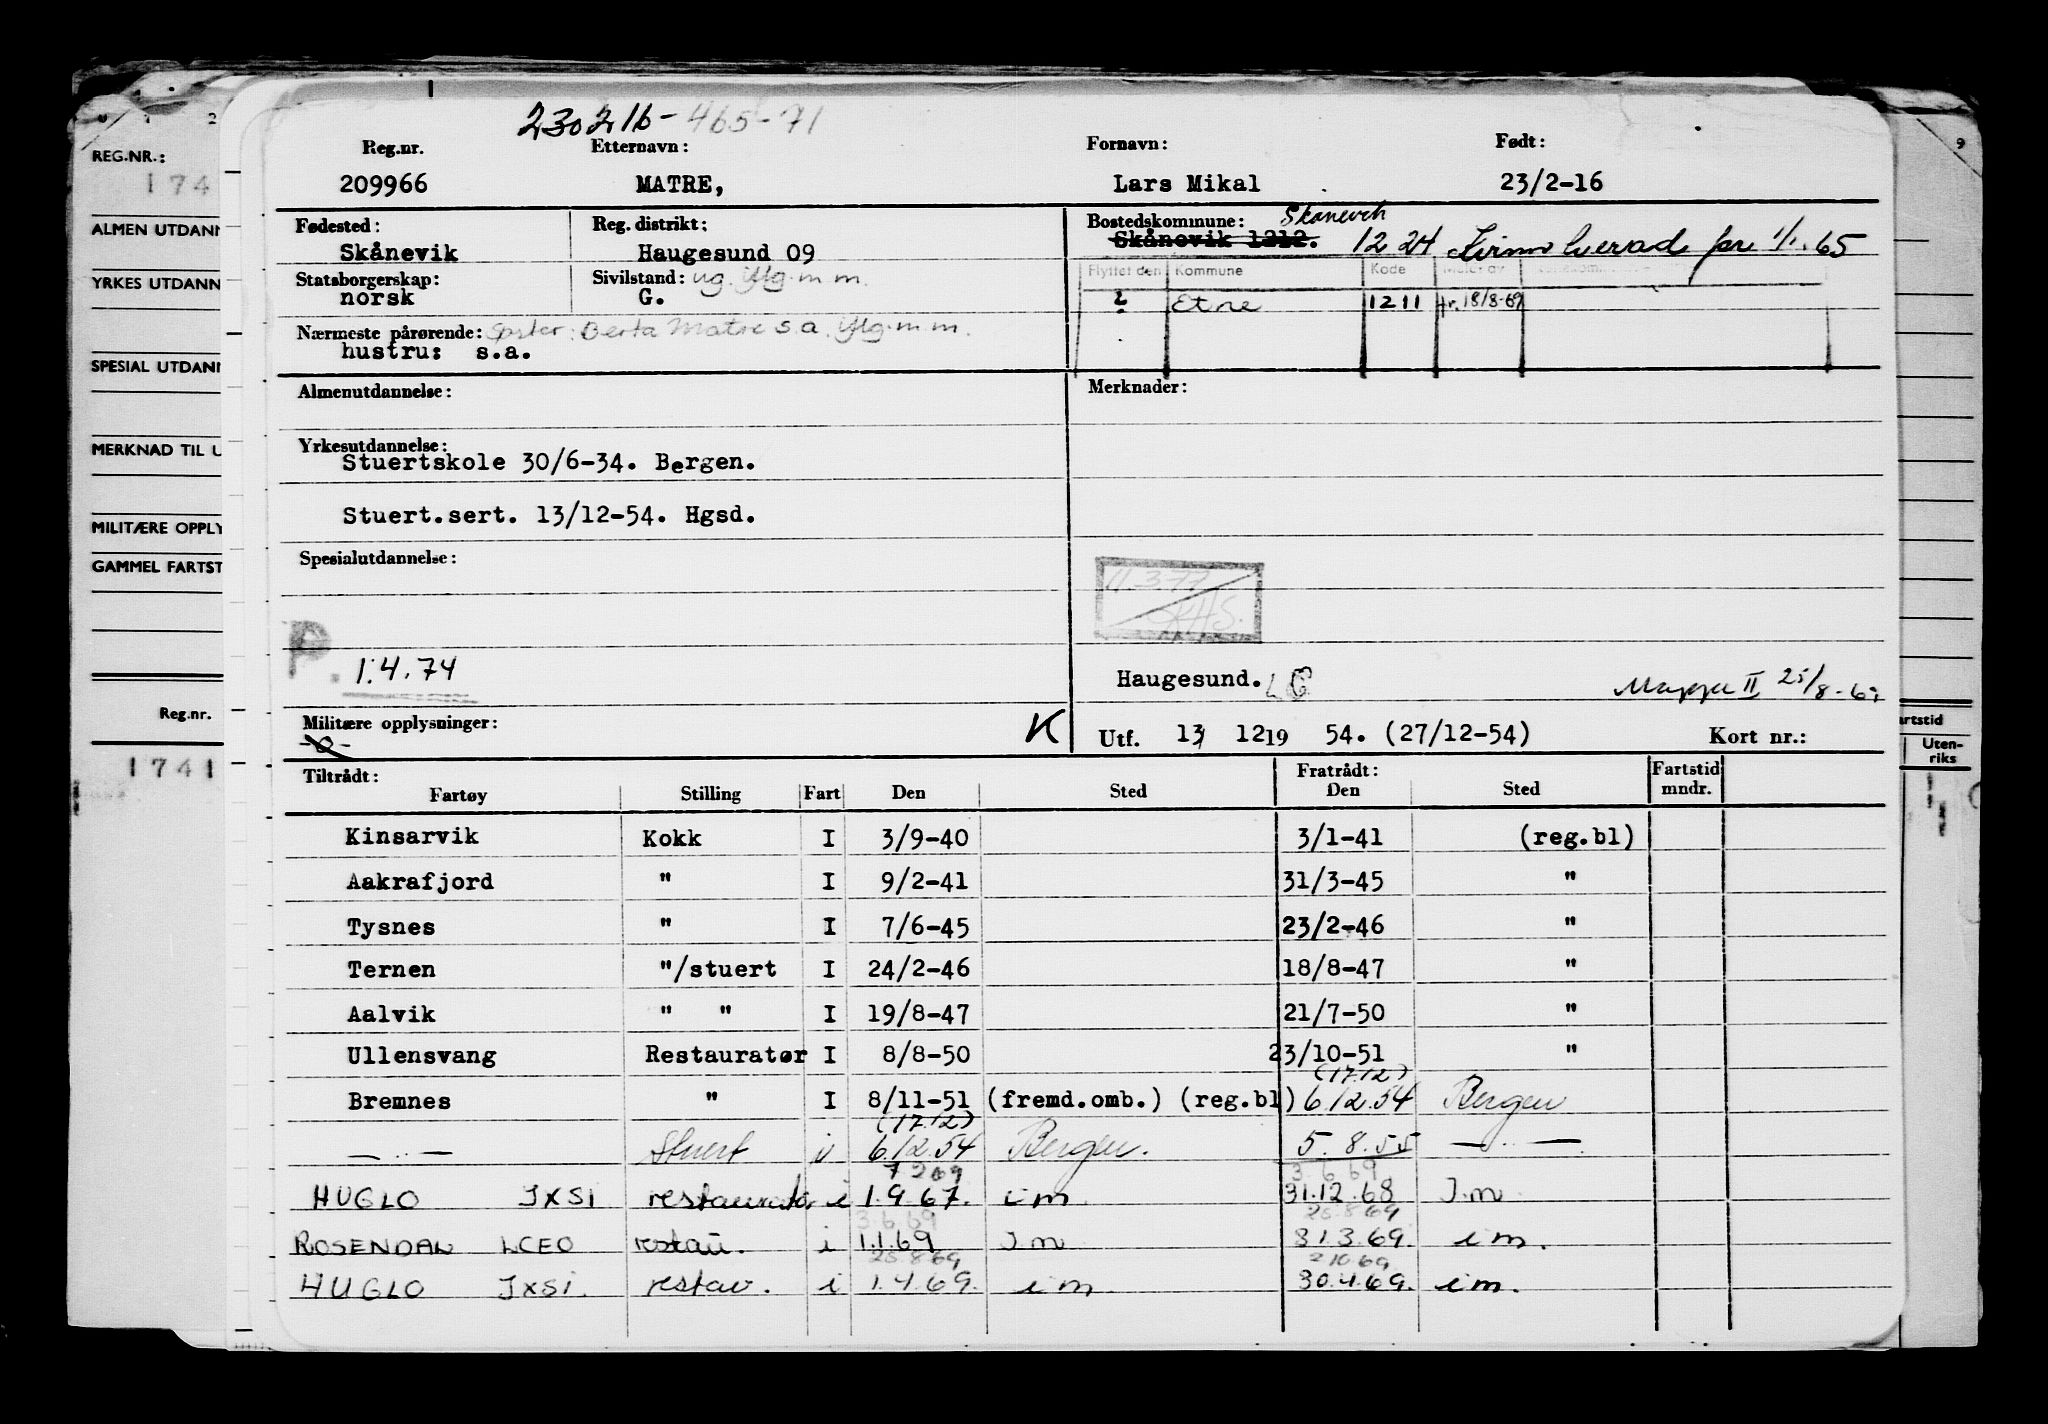 230216-465-71
Reg.nr. Etternavn: Fornavn: Født:
209966 MATRE, Lars Mikal 23/2-16
Fødested: Reg. distrikt: Bostedskommune: Skånevik
Skånevik Haugesund 09 Skånevik 1212. 1224 Kvinnherad fra 1/1-65
Statsborgerskap: Sivilstand: ug. Mg. m m. Flyttet den Kommune Kode Meld. av
norsk G. ? Etne 1211 fr. 18/8-69
Nærmeste pårørende: Søster: Berta Matre s.a. Mg. m m.
hustru: s.a.
Almenutdannelse: Merknader:
Yrkesutdannelse:
Stuertskole 30/6-34. Bergen.
Stuert.sert. 13/12-54. Hgsd.
Spesialutdannelse:
11.3.77
SKHS.
P. 1.4.74
Haugesund. Mappe II 25/8-69
Militære opplysninger: K
-o-
Utf. 13 12 19 54. (27/12-54) Kort nr.:
Tiltrådt: Fratrådt: Fartstid
Fartøy Stilling Fart Den Sted Den Sted mndr.
Kinsarvik Kokk I 3/9-40 3/1-41 (reg.bl)
Aakrafjord " I 9/2-41 31/3-45 "
Tysnes " I 7/6-45 23/2-46 "
Ternen "/stuert I 24/2-46 18/8-47 "
Aalvik " " I 19/8-47 21/7-50 "
Ullensvang Restauratør I 8/8-50 23/10-51 "
(17.12)
Bremnes " I 8/11-51 (fremd.omb.) (reg.bl) 6.12.54 Bergen
(17.12)
— " — Stuert i 6.12.54 Bergen. 5.8.55 — " —
7 2 69 3.6.69
HUGLO JXSI restauratør i 1.9.67. im 31.12.68 Im
3.6.69 25.8.69
ROSENDAL LCEO restau. i 1.1.69 Im 31.3.69. im.
25.8.69 2.10.69
HUGLO JXSI. restau. i 1.4.69. im 30.4.69. im.
REG.NR.:
174
ALMEN UTDANN
YRKES UTDANN
SPESIAL UTDANN
MERKNAD TIL U
MILITÆRE OPPLY
GAMMEL FARTST
Reg.nr.
1741
9
artstid
Uten-
riks